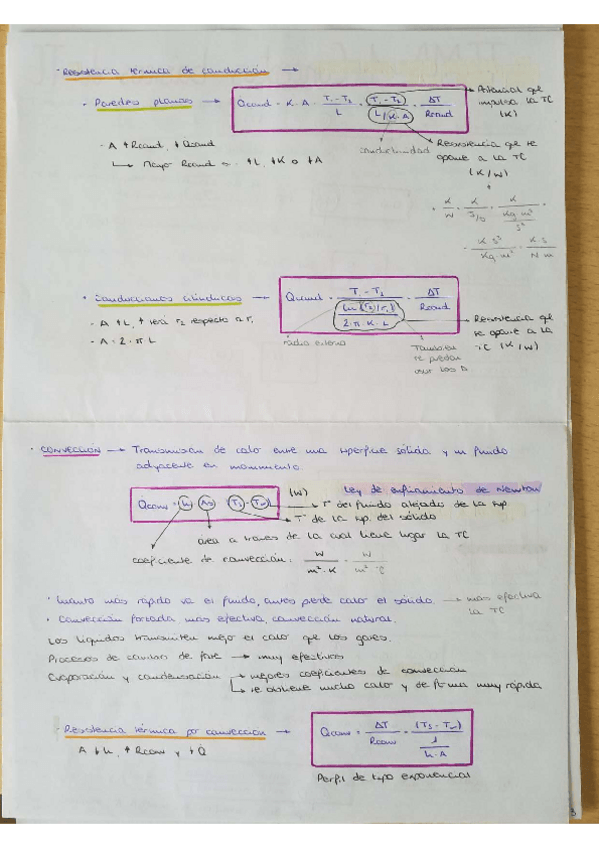 · Resistencia térmica de conducción →
· Paredes planas → Qcond = K · A · (T₁ - T₂)/L = (T₁ - T₂)/(L/K·A) = ΔT/Rcond
Potencial que impulsa la TC (K)
conductividad
Resistencia que se opone a la TC (K/W)
· A ↑ Rcond, ↓ Qcond
↳ Mayor Rcond si ↑L, ↓K o ↓A
K/W = K/(J/s) = K/(Kg m²/s³)
= K s³/(Kg · m²) = K s/(N m)
· Conducciones cilíndricas → Qcond = (T₁ - T₂)/(ln(r₂/r₁)/(2·π·K·L)) = ΔT/Rcond
· A ↑L, ↑ r₂ respecto a r₁
· A = 2·π L
radio externo
Resistencia que se opone a la TC (K/W)
· CONVECCIÓN → Transmisión de calor entre una superficie sólida y un fluido
adyacente en movimiento.
Qconv = h · As · (Ts - T∞) (W) Ley de enfriamiento de Newton
→ Tª del fluido alejado de la sup.
→ Tª de la sup. del sólido
area a través de la cual tiene lugar la TC
coeficiente de convección: W/(m²·K) = W/(m² °C)
· Cuanto más rápido va el fluido, antes pierde calor el sólido. → más efectiva la TC
· Convección forzada más efectiva, convección natural.
Los líquidos transmiten mejor el calor que los gases.
Procesos de cambio de fase → muy efectivos
Evaporación y condensación → mejores coeficientes de convección
↳ se obtiene mucho calor y de forma muy rápida
· Resistencia térmica por convección → Qconv = ΔT/Rconv = (Ts - T∞)/(1/(h·A))
A ↓h, ↑ Rconv y ↓Q
Perfil de tipo exponencial
3